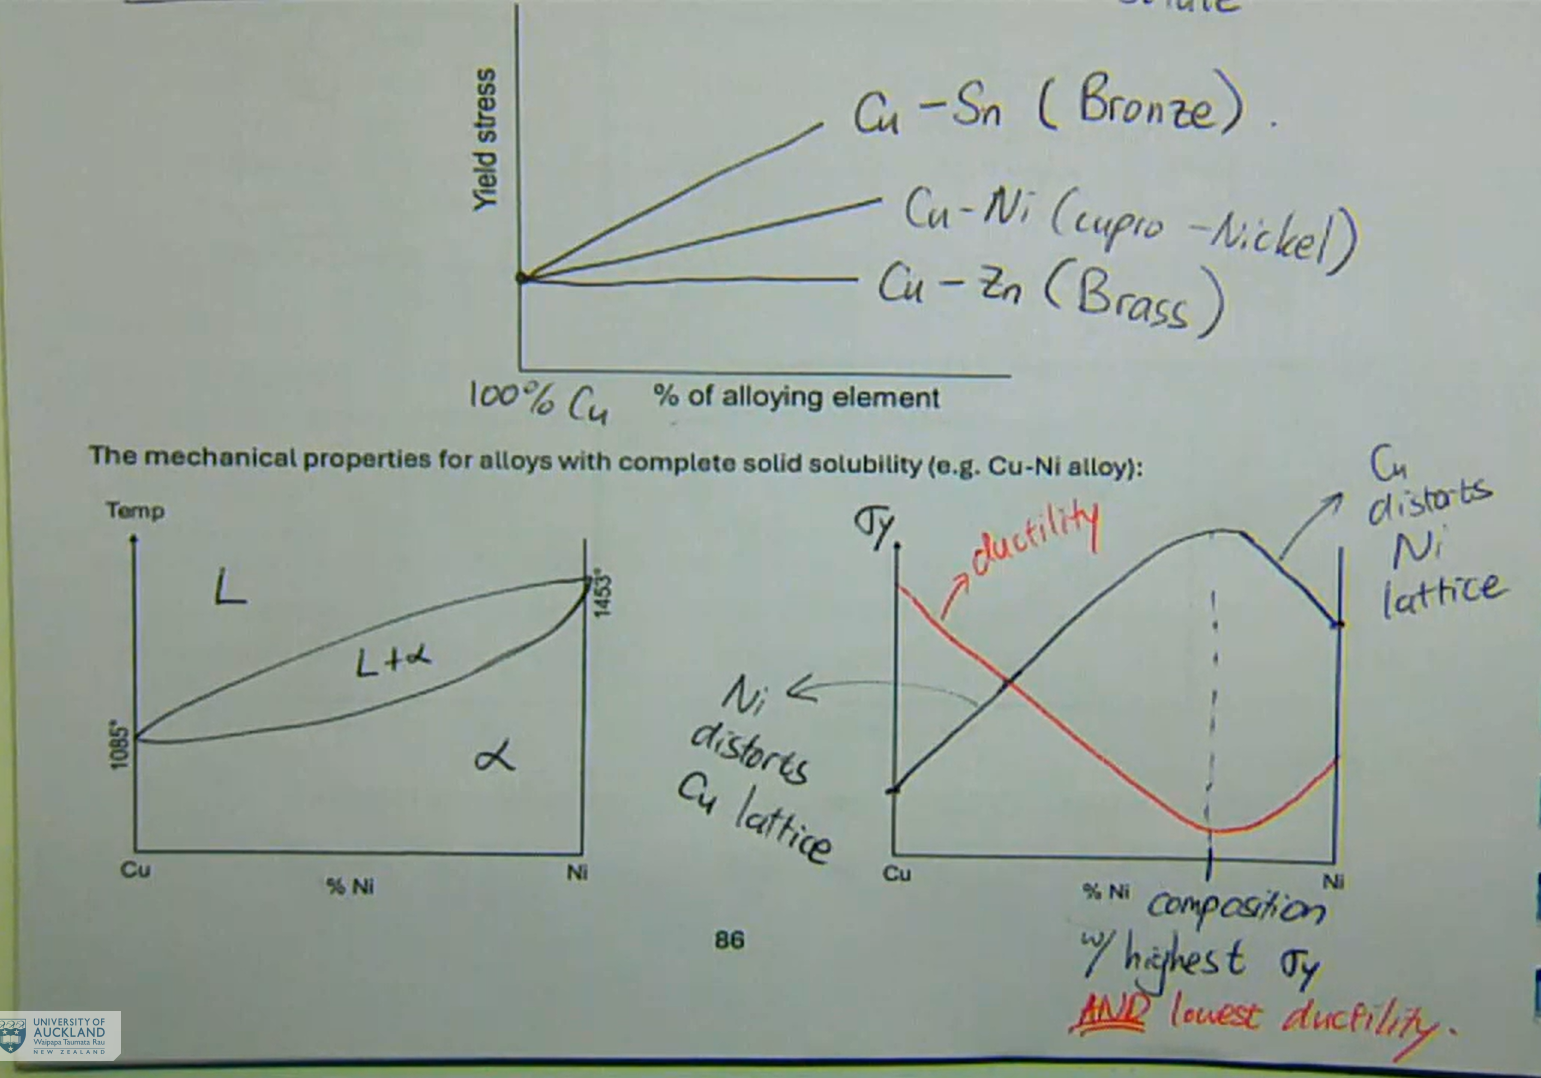 Yield stress
Cu - Sn (Bronze).
Cu - Ni (cupro - Nickel)
Cu - Zn (Brass)
100% Cu
% of alloying element
The mechanical properties for alloys with complete solid solubility (e.g. Cu-Ni alloy):
Temp
L
L+α
α
1085°
1453°
Cu
% Ni
Ni
σy
ductility
Cu
distorts
Ni
lattice
Ni
distorts
Cu lattice
Cu
% Ni
Ni
composition
w/ highest σy
AND lowest ductility.
86
UNIVERSITY OF
AUCKLAND
Waipapa Taumata Rau
NEW ZEALAND